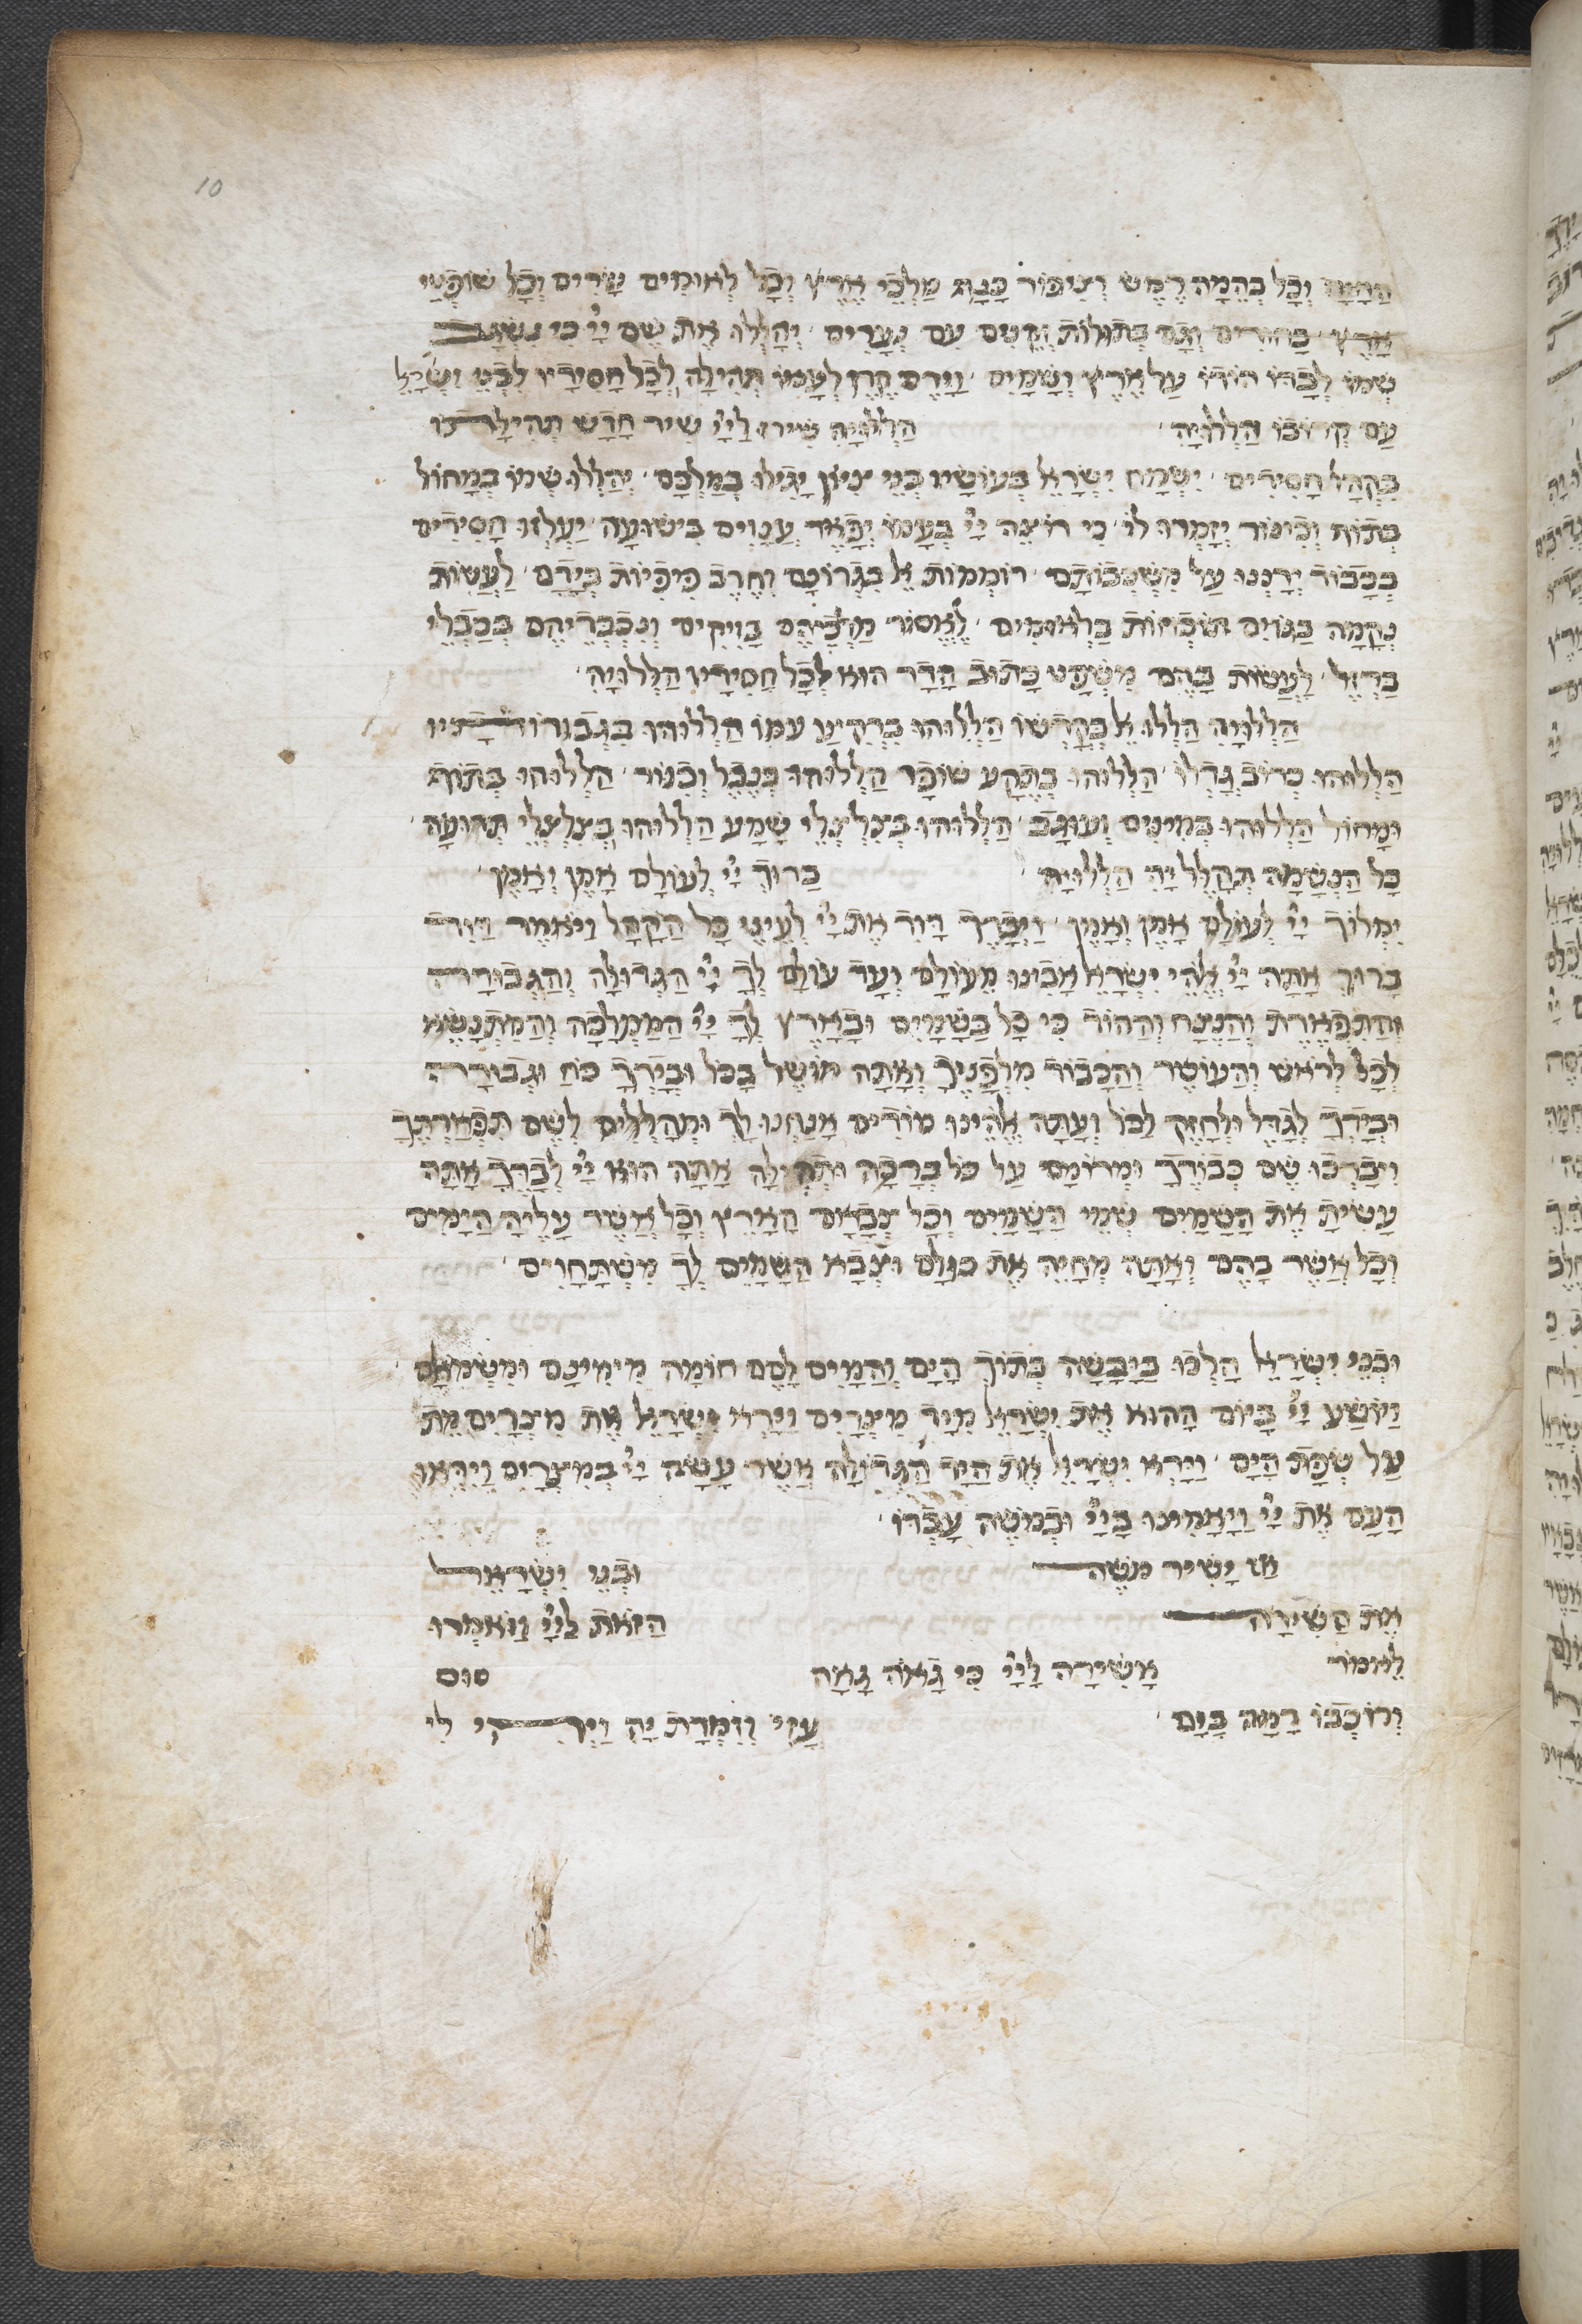 10
החיה וכל בהמה רמש וציפור כנף מלכי ארץ וכל לאומים שרים וכל שופטי
ארץ בחורים וגם בתולות זקנים עם נערים יהללו את שם יי כי נשגב
שמו לבדו הודו על ארץ ושמים וירם קרן לעמו תהילה לכל חסידיו לבני ישראל
עם קרובו הללויה הללויה שירו ליי שיר חדש תהילתו
בקהל חסידים ישמח ישראל בעושיו בני ציון יגילו במלכם יהללו שמו במחול
בתוף וכינור יזמרו לו כי רוצה יי בעמו יפאר ענוים בישועה יעלזו חסידים
בכבוד ירננו על משכבותם רוממות אל בגרונם וחרב פיפיות בידם לעשות
נקמה בגוים תוכחות בלאומים לאסור מלכיהם בזיקים ונכבדיהם בכבלי
ברזל לעשות בהם משפט כתוב הדר הוא לכל חסידיו הללויה
הללויה הללו אל בקדשו הללוהו ברקיע עוזו הללוהו בגבורותיו
הללוהו כרוב גדלו הללוהו בתקע שופר הללוהו בנבל וכנור הללוהו בתוף
ומחול הללוהו במינים ועוגב הללוהו בצלצלי שמע הללוהו בצלצלי תרועה
כל הנשמה תהלל יה הללויה ברוך יי לעולם אמן ואמן
ימלוך יי לעולם אמן ואמן ויברך דויד את יי לעיני כל הקהל ויאמר דויד
ברוך אתה יי אלהי ישראל אבינו מעולם ועד עולם לך יי הגדולה והגבורה
והתפארת והנצח וההוד כי כל בשמים ובארץ לך יי הממלכה והמתנשא
לכל לראש והעושר והכבוד מלפניך ואתה מושל בכל ובידך כח וגבורה
ובידך לגדל ולחזק לכל ועתה אלהינו מודים אנחנו לך ומהללים לשם תפארתך
ויברכו שם כבודך ומרומם על כל ברכה ותהילה אתה הוא יי לבדך אתה
עשית את השמים שמי השמים וכל צבאם הארץ וכל אשר עליה הימים
וכל אשר בהם ואתה מחיה את כולם וצבא השמים לך משתחוים
ובני ישראל הלכו ביבשה בתוך הים והמים להם חומה מימינם ומשמאלם
ויושע יי ביום ההוא את ישראל מיד מצרים וירא ישראל את מצרים מת
על שפת הים וירא ישראל את היד הגדולה אשר עשה יי במצרים וייראו
העם את יי ויאמינו ביי ובמשה עבדו
אז ישיר משה ובני ישראל
את השירה הזאת ליי ויאמרו
לאמר אשירה ליי כי גאה גאה סוס
ורוכבו רמה בים עזי וזמרת יה ויהי לי